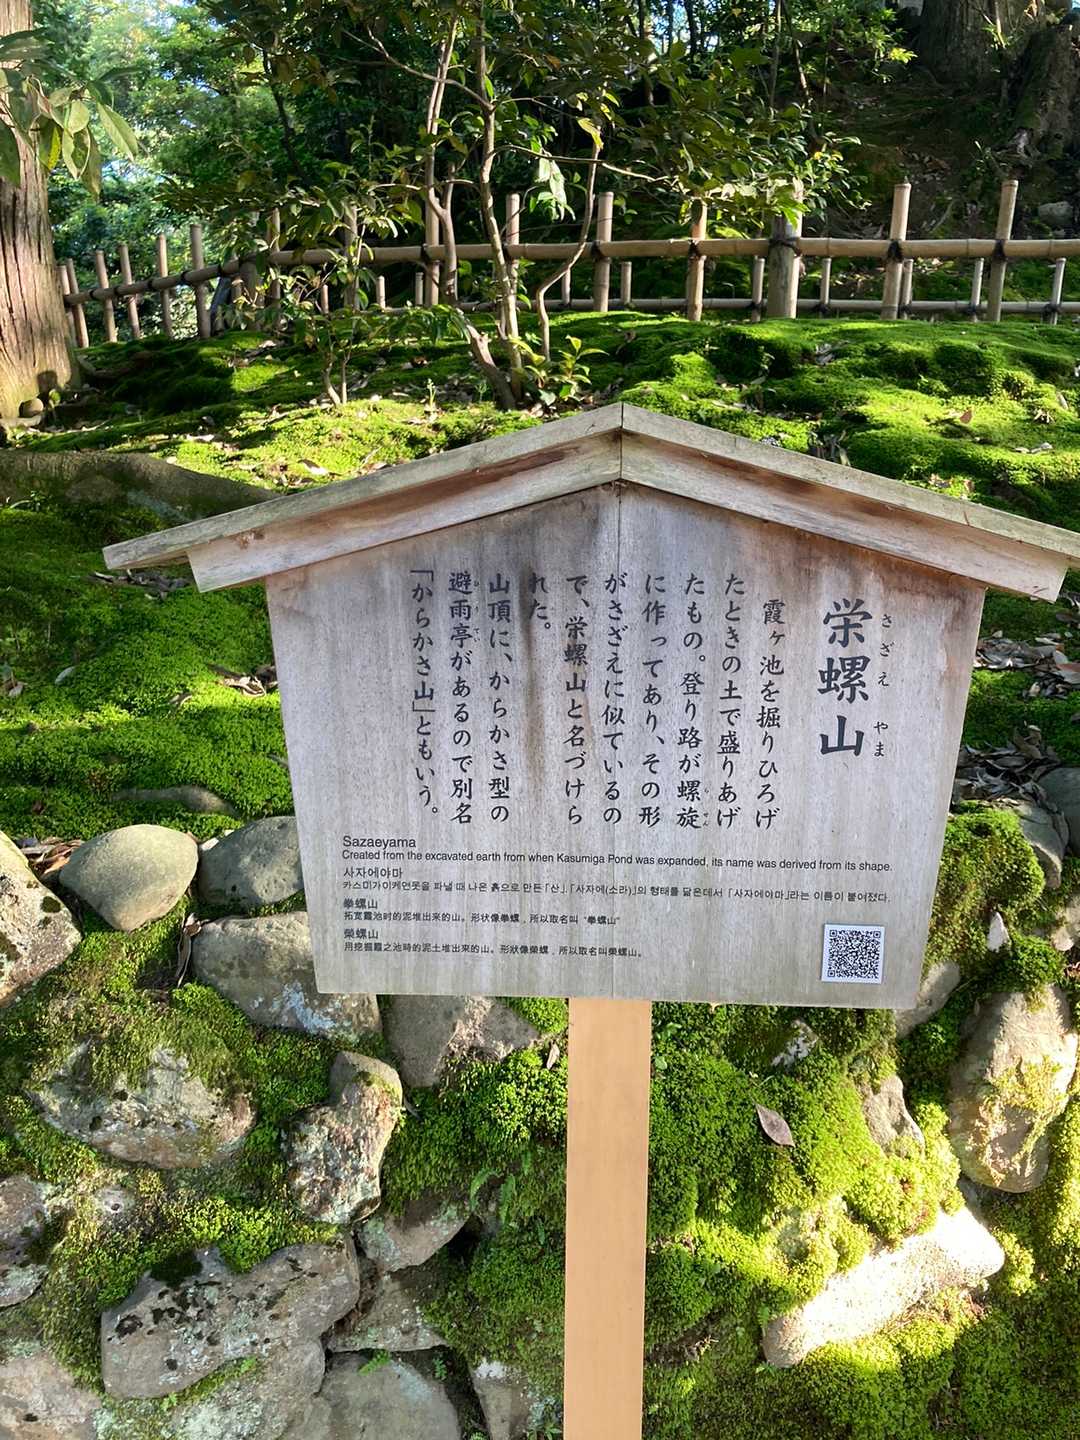 栄螺山
さざえ やま
霞ヶ池を掘りひろげ
たときの土で盛りあげ
たもの。登り路が螺旋
らせん
に作ってあり、その形
がさざえに似ているの
で、栄螺山と名づけら
れた。
山頂に、からかさ型の
避雨亭があるので別名
ひうてい
「からかさ山」ともいう。
Sazaeyama
Created from the excavated earth from when Kasumiga Pond was expanded, its name was derived from its shape.
사자에야마
카스미가이케연못을 파낼 때 나온 흙으로 만든 「산」. 「사자에(소라)」의 형태를 닮은데서 「사자에야마」라는 이름이 붙어졌다.
拳螺山
拓宽霞池时的泥堆出来的山。形状像拳螺，所以取名叫 “拳螺山”
榮螺山
用挖掘霞之池時的泥土堆出來的山。形狀像榮螺，所以取名叫榮螺山。